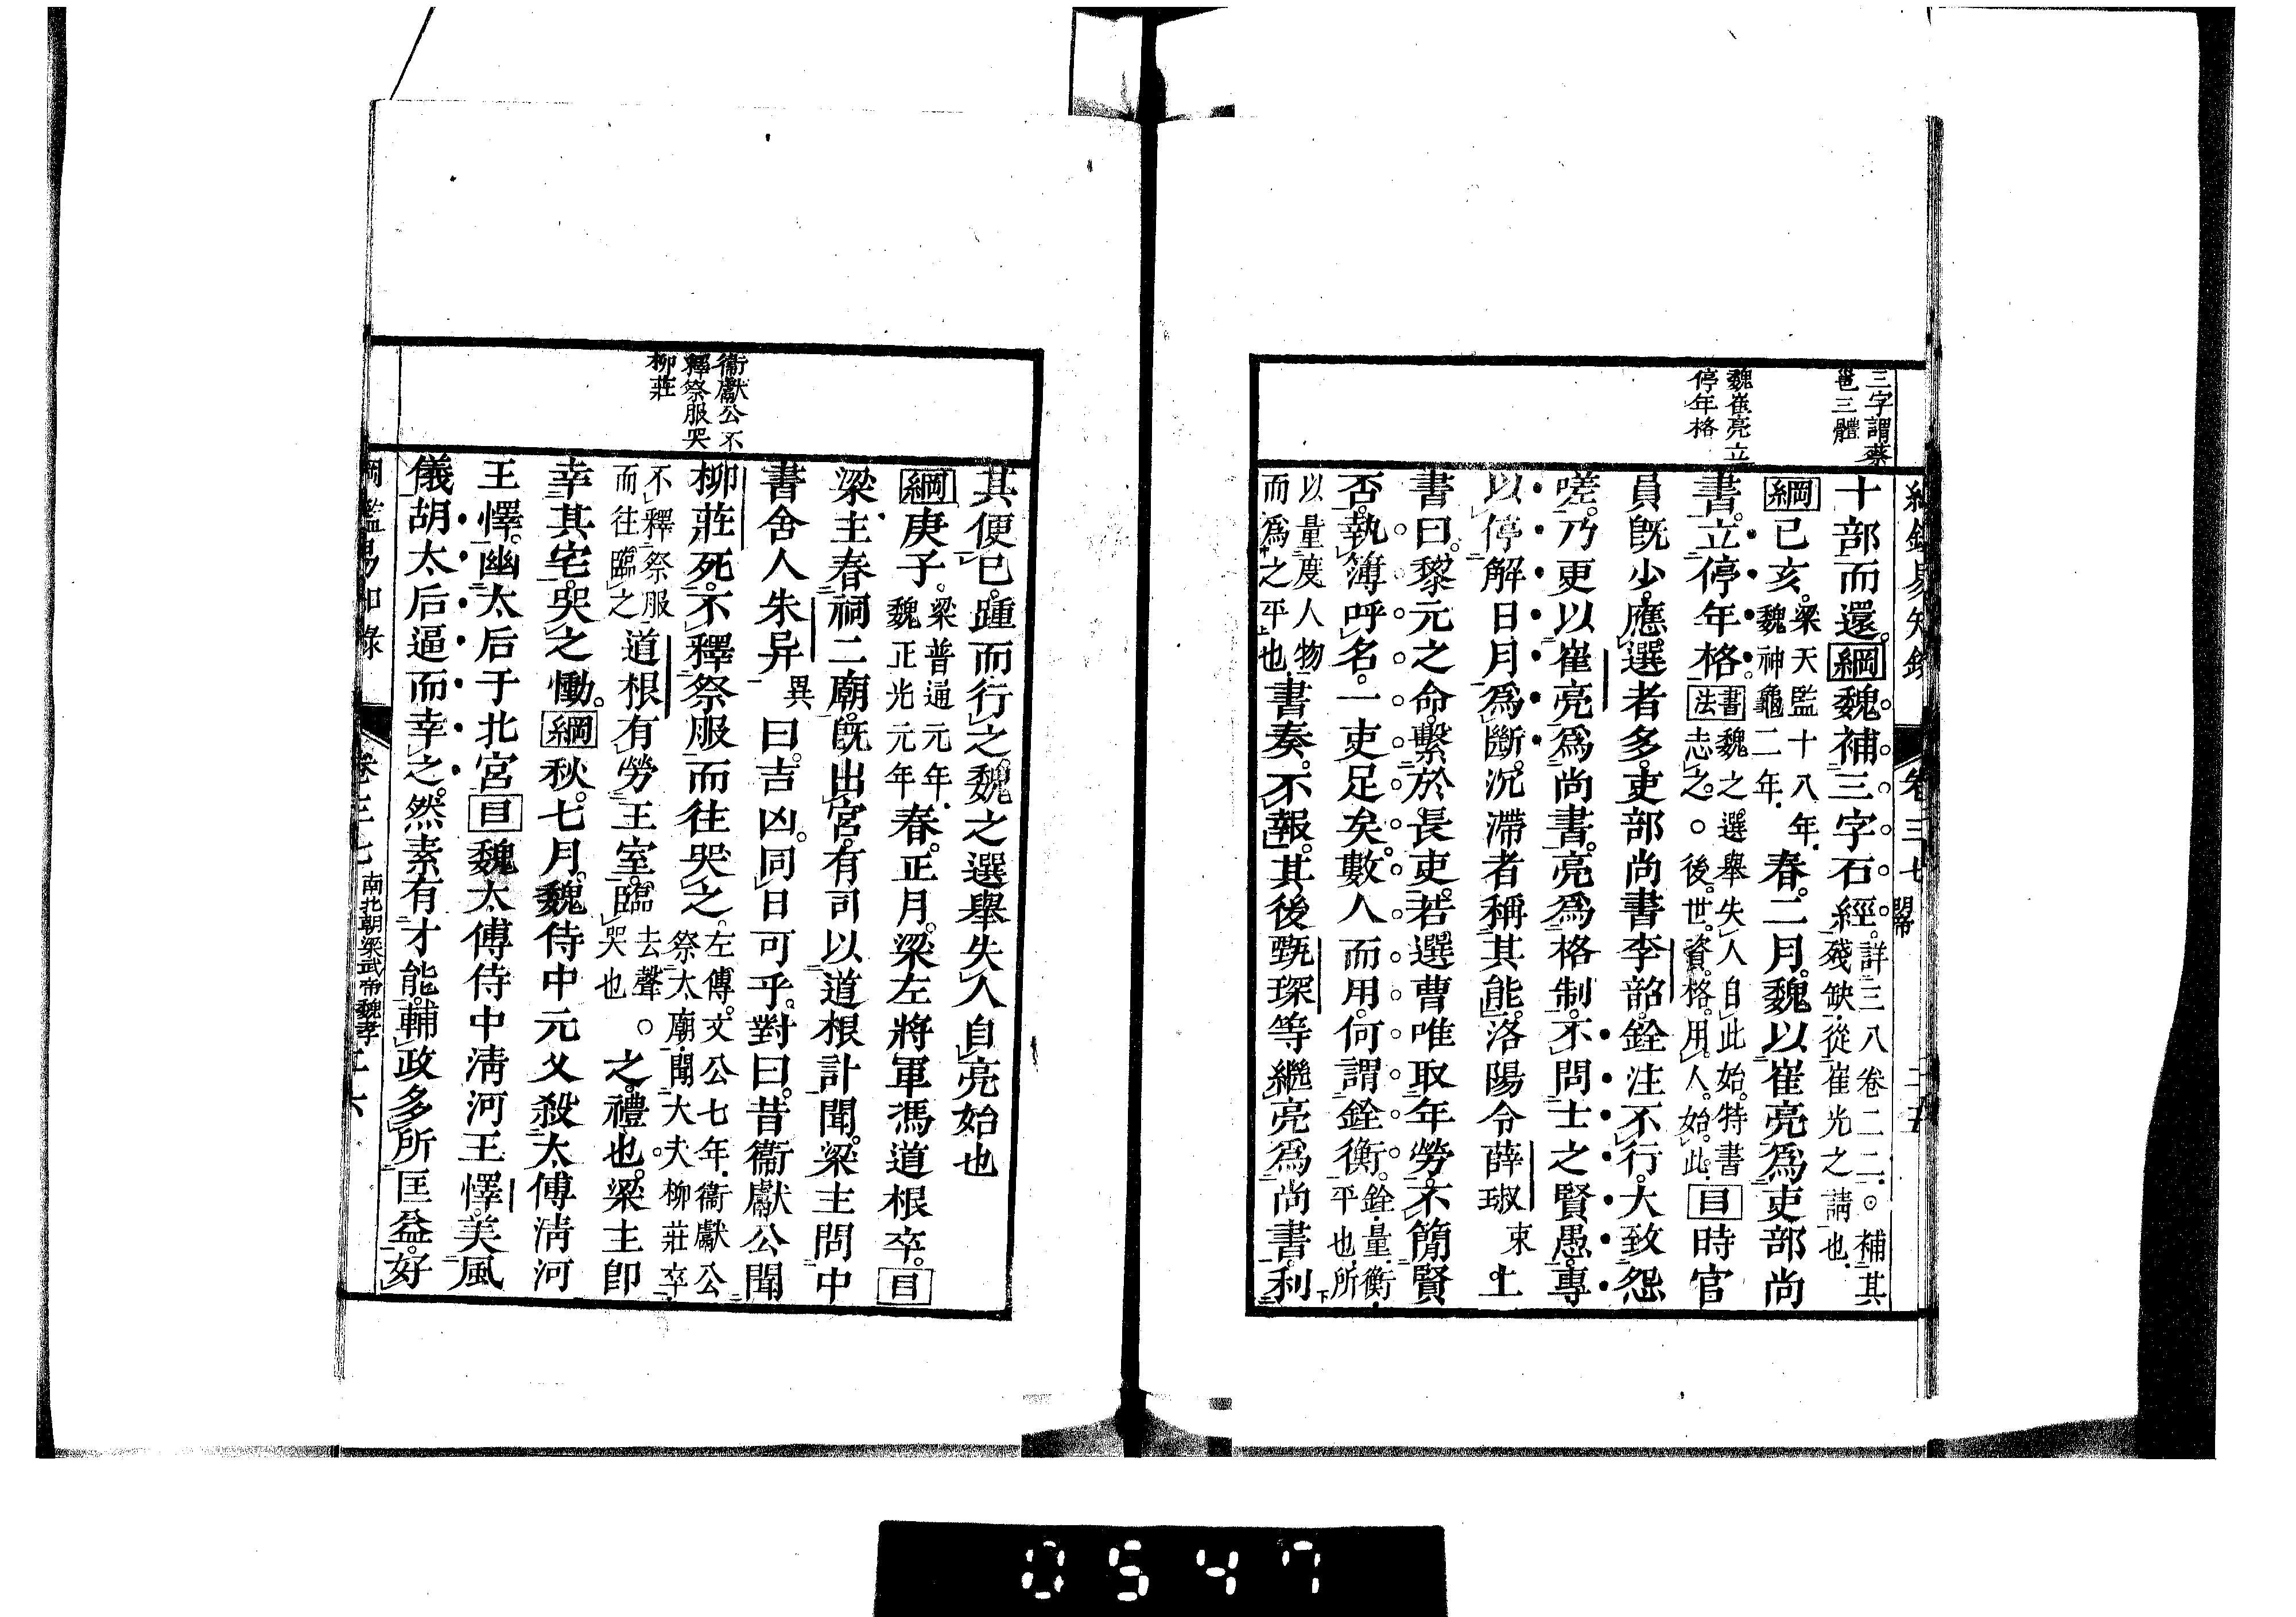 三字謂蔡
邕三體
魏崔亮立
停年格
十部而還。綱魏補三字石經。詳三八卷二二。○補其殘缺從崔光之請也。
綱己亥。梁天監十八年。魏神龜二年。春。二月。魏以崔亮爲吏部尚
書。立停年格。書法書魏之選舉失人自此始。特書志之。○後世資格用人。始此。目時官
員既少。應選者多。吏部尚書李韶。銓注不行。大致怨
嗟。乃更以崔亮爲尚書。亮爲格制。不問士之賢愚。專
以停解日月爲斷。沉滯者稱其能。洛陽令薛琡束上
書曰。黎元之命。繫於長吏。若選曹唯取年勞。不簡賢
否。執簿呼名。一吏足矣。數人而用。何謂銓衡。銓量。衡平也。所
以量度人物而爲之平也。書奏。不報。其後甄琛等繼亮爲尚書。利
卷三七
二五
其便已。踵而行之。魏之選舉失人。自亮始也
綱庚子。梁普通元年。魏正光元年春。正月。梁左將軍馮道根卒。目
梁主春祠二廟。既出宮。有司以道根計聞。梁主問中
書舍人朱异異曰。吉凶。同日可乎。對曰。昔衞獻公聞
柳莊死。不釋祭服而往哭之。左傳。文公七年。衞獻公祭太廟。聞大夫柳莊卒。
不釋祭服而往臨之道根有勞王室。臨去聲。哭也。○之。禮也。梁主卽
幸其宅。哭之慟。綱秋。七月。魏侍中元乂殺太傅淸河
王懌。幽太后于北宮目魏太傅侍中淸河王懌。美風
儀。胡太后逼而幸之。然素有才能。輔政多所匡益。好
衞獻公不
釋祭服哭
柳莊
綱鑑易知錄
卷三七
南北朝梁武帝魏孝
二六
0547